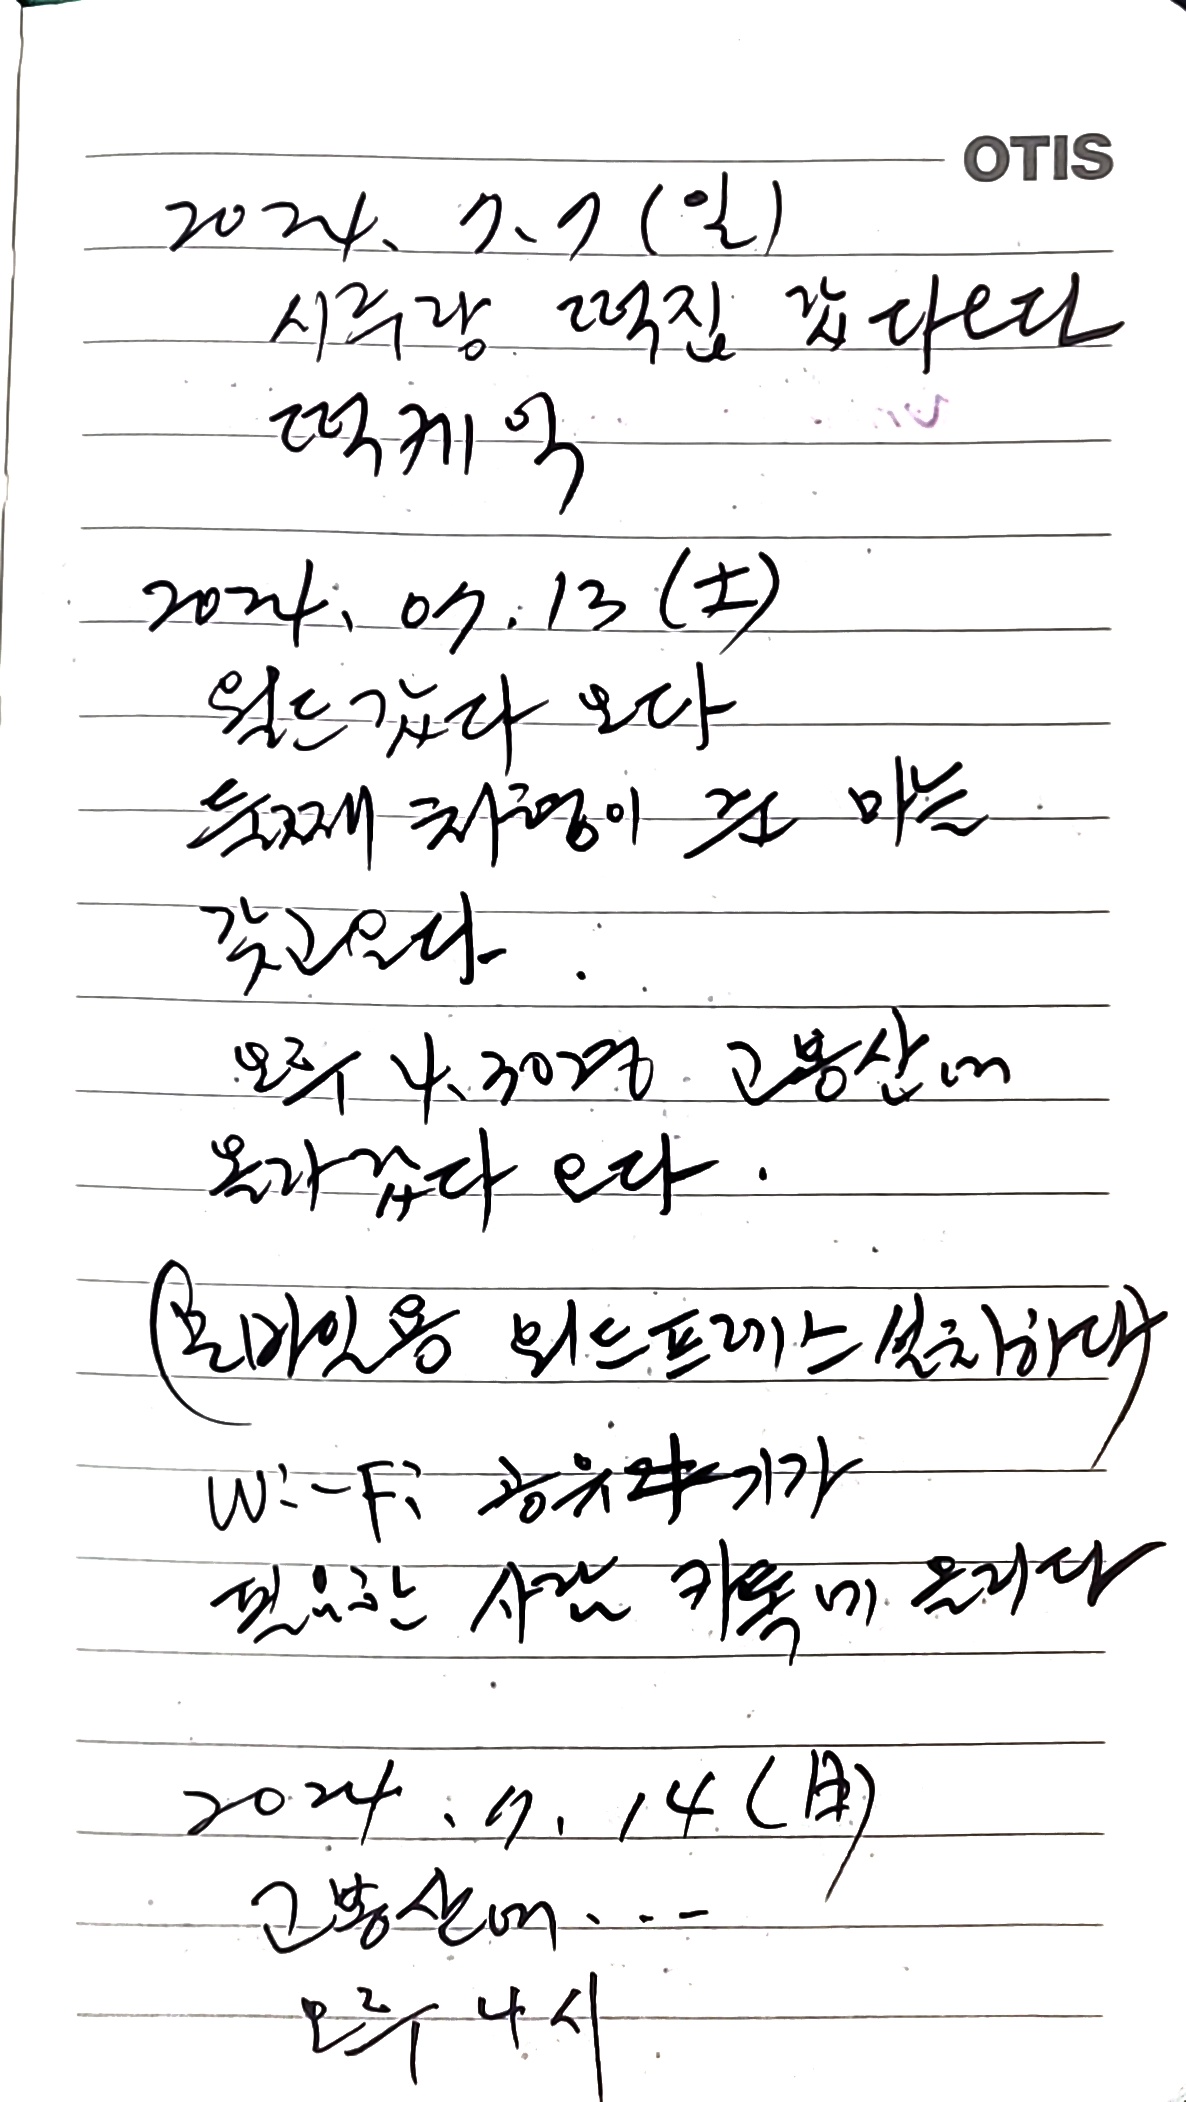 OTIS
2024. 7. 7 (일)
시루랑 떡집 갔다오다
떡케익
2024. 07. 13 (土)
월드갔다 오다
둘째 처형이 준 마늘
갖고오다.
오후 4.30경 고봉산에
올라갔다 오다.
(모바일용 워드프레스 설치하다)
Wi-Fi 공유기가
필요한 사람 카톡에 올리다
2024. 7. 14 (日)
고봉산에 . . . -
오후 4시